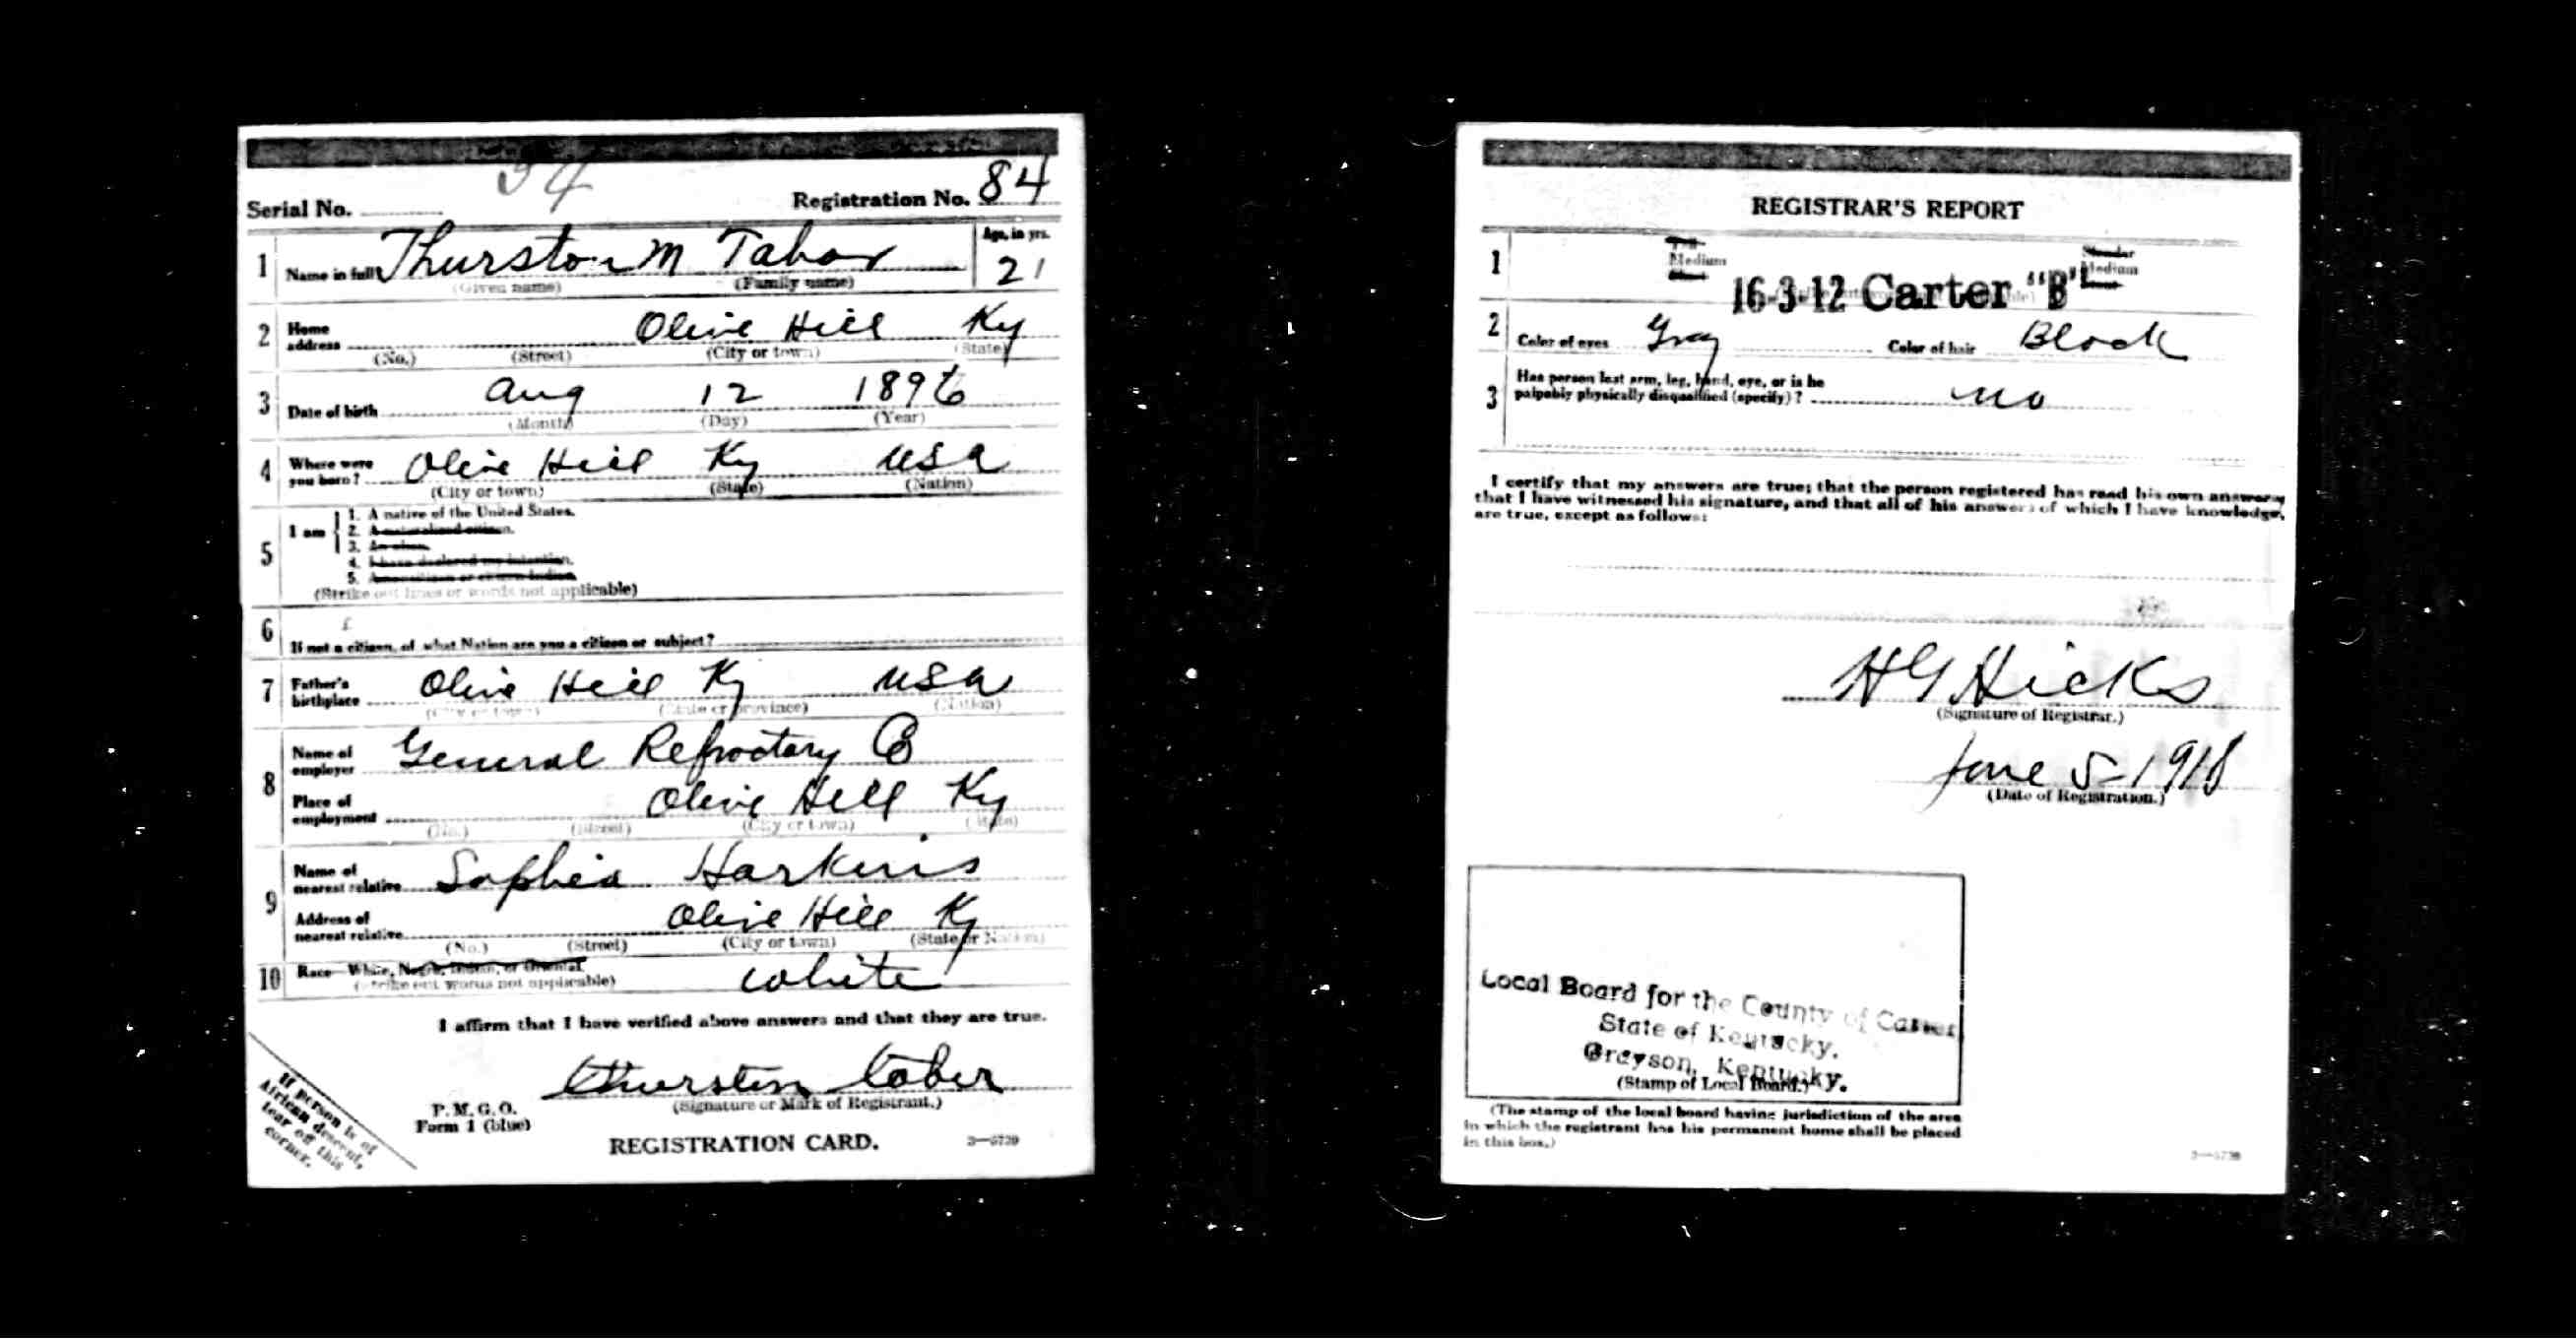 34
Serial No. Registration No. 84
1 Name in full Thurston M Tabor Age, in yrs. 21
(Given name) (Family name)
2 Home address Olive Hill Ky
(No.) (Street) (City or town) (State)
3 Date of birth Aug 12 1896
(Month) (Day) (Year)
4 Where were you born? Olive Hill Ky USA
(City or town) (State) (Nation)
5 I am
1. A native of the United States.
2. A naturalized citizen.
3. An alien.
4. I have declared my intention.
5. A noncitizen or citizen Indian.
(Strike out lines or words not applicable)
6 If not a citizen, of what Nation are you a citizen or subject?
7 Father's birthplace Olive Hill Ky USA
(City or town) (State or province) (Nation)
8 Name of employer General Refractory Co
Place of employment Olive Hill Ky
(No.) (Street) (City or town) (State)
9 Name of nearest relative Sophia Harkins
Address of nearest relative Olive Hill Ky
(No.) (Street) (City or town) (State or Nation)
10 Race—White, Negro, Indian, or Oriental. White
(Strike out words not applicable)
I affirm that I have verified above answers and that they are true.
Thurston Taber
(Signature or Mark of Registrant.)
P. M. G. O.
Form 1 (blue)
REGISTRATION CARD.
If person is of
African descent,
tear off this
corner.
REGISTRAR'S REPORT
1 Tall Medium Short Slender Medium Stout
16-3-12 Carter "B"
2 Color of eyes Gray Color of hair Black
3 Has person lost arm, leg, hand, eye, or is he
palpably physically disqualified (specify)? No
I certify that my answers are true; that the person registered has read his own answers,
that I have witnessed his signature, and that all of his answers of which I have knowledge,
are true, except as follows:
H G Hicks
(Signature of Registrar.)
June 5-1918
(Date of Registration.)
Local Board for the County of Carter
State of Kentucky.
Grayson, Kentucky.
(Stamp of Local Board.)
(The stamp of the local board having jurisdiction of the area
in which the registrant has his permanent home shall be placed
in this box.)